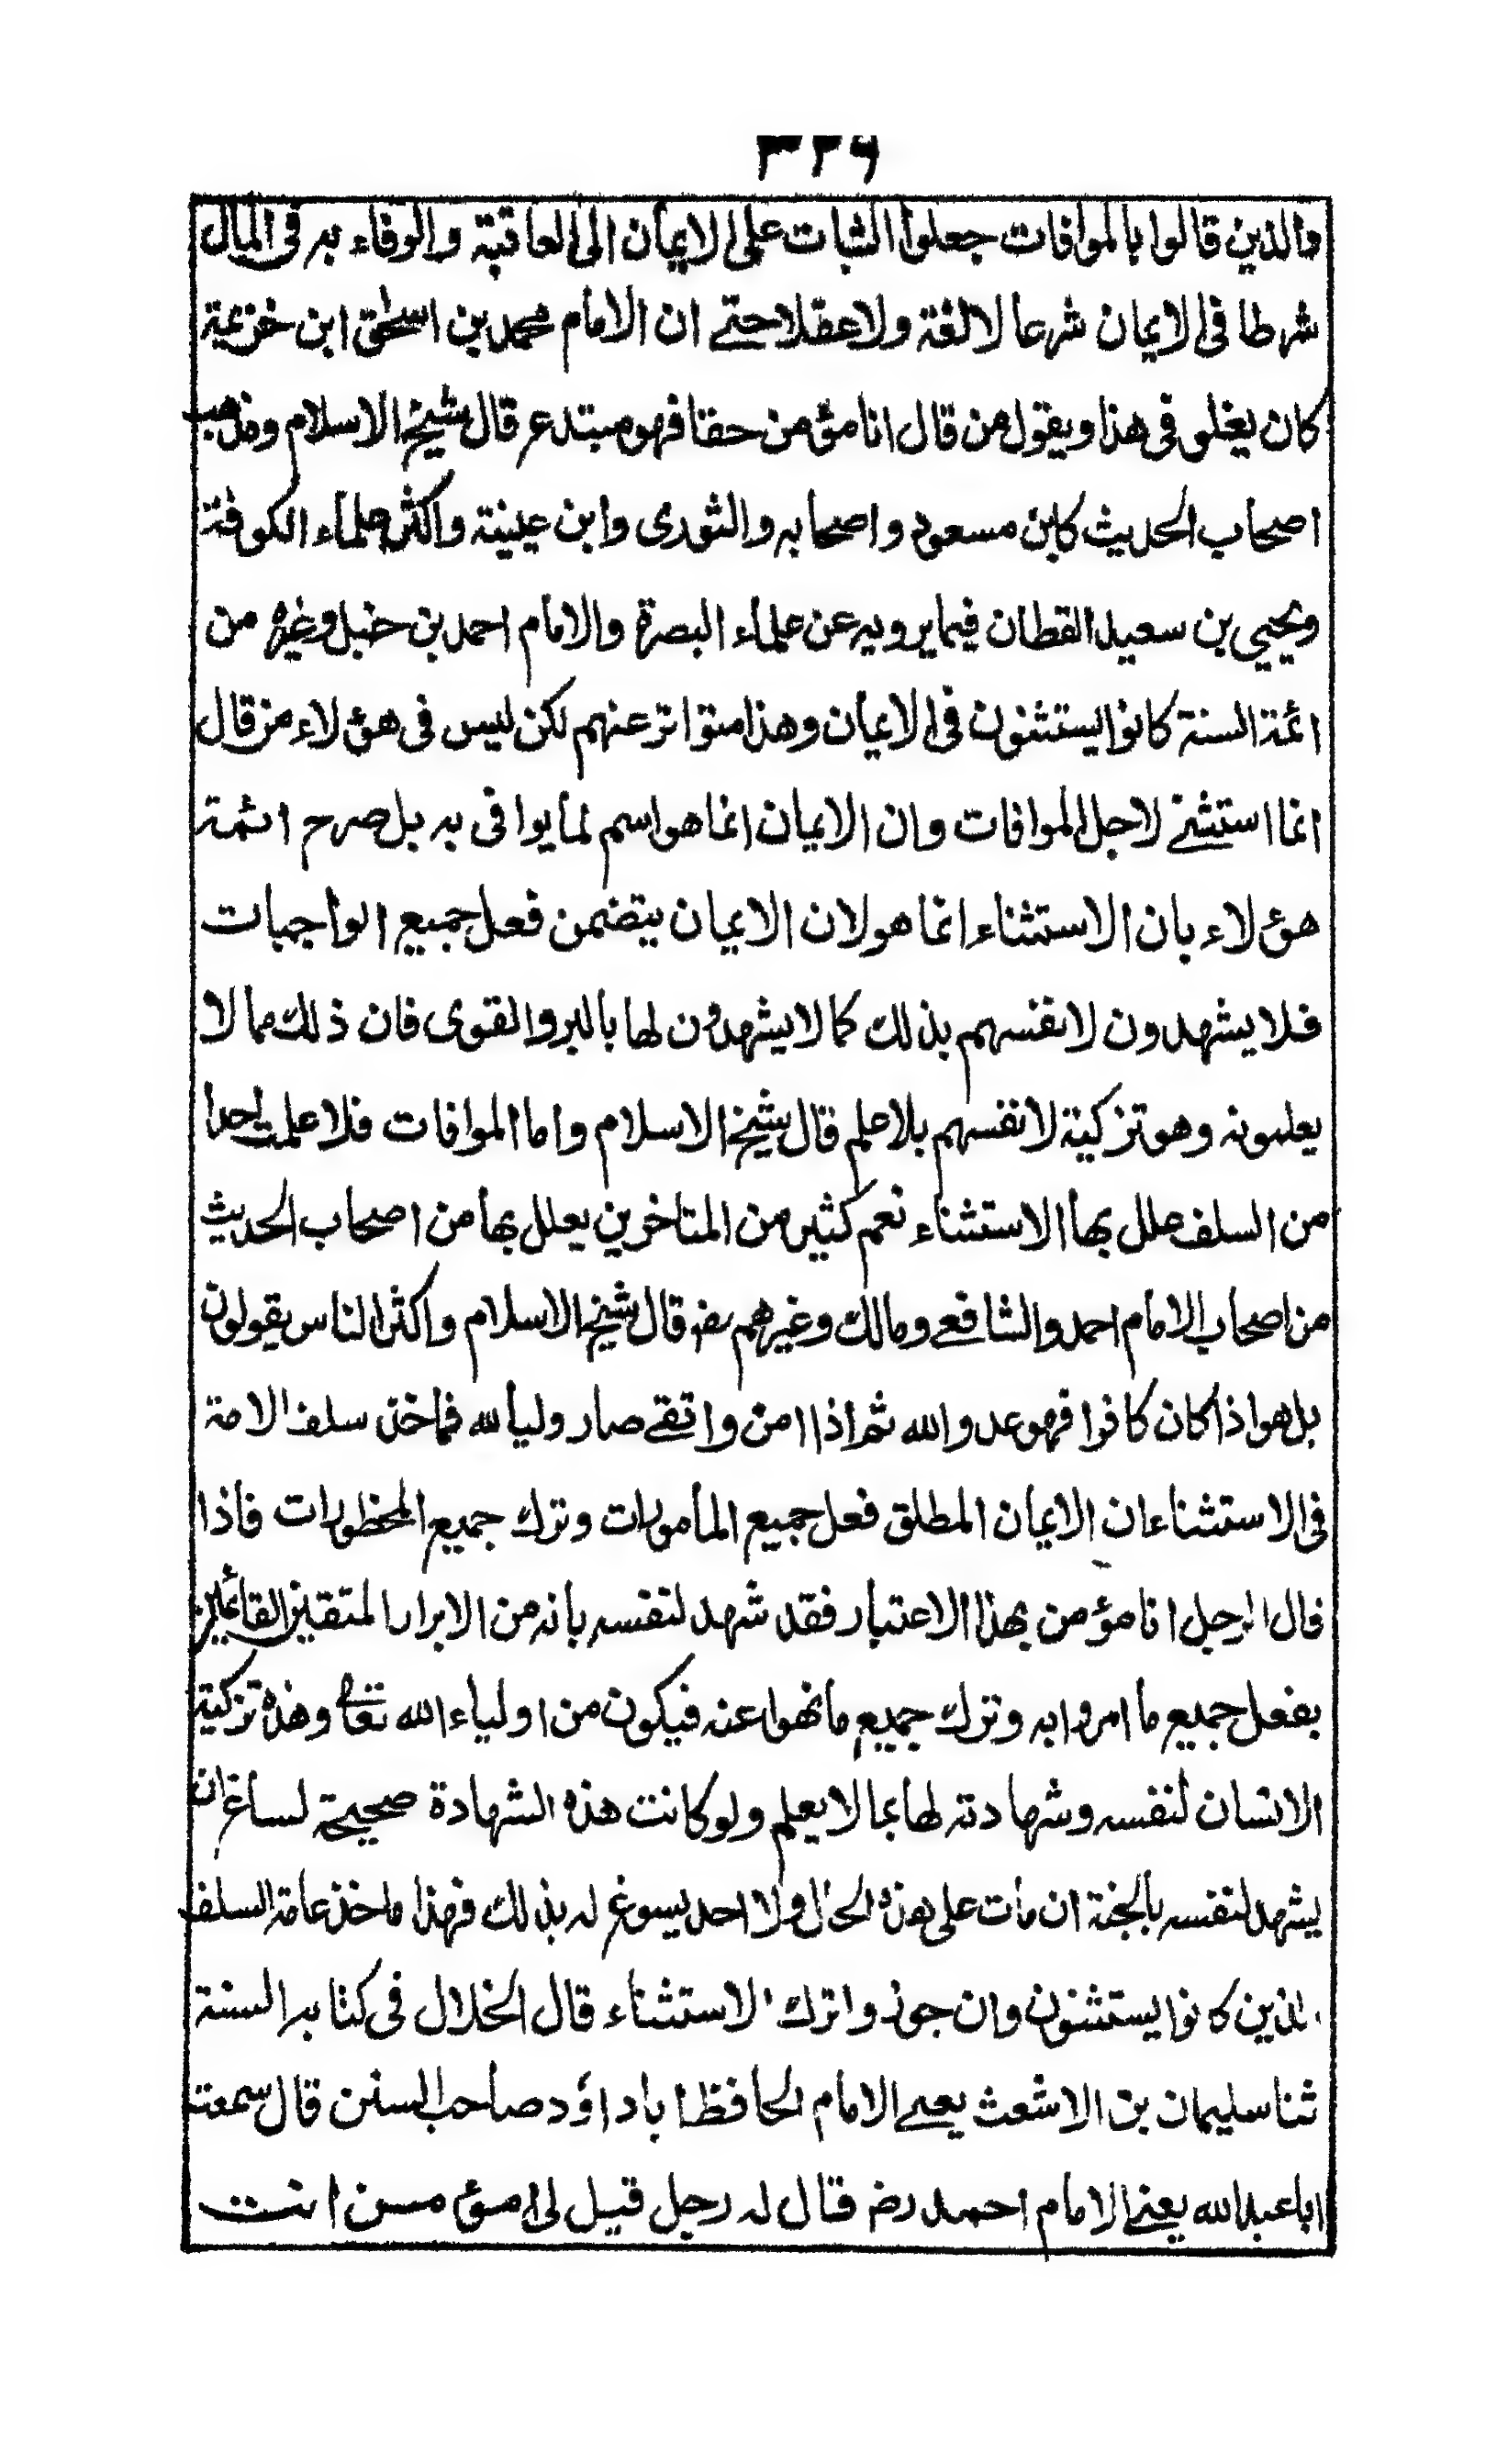 ٣٢٦
والذين قالوا بالموافات جعلوا الثبات على الايمان الى العاقبة والوفاء به في المآل
شرطا في الايمان شرعا لا لغة ولا عقلا حتے ان الامام محمد بن اسحٰق ابن خزيمة
كان يغلو في هذا ويقول من قال انا مؤمن حقا فهو مبتدع قال شيخ الاسلام ومذهب
اصحاب الحديث كابن مسعود واصحابه والثوري وابن عيينة واكثر علماء الكوفة
ويحيي بن سعيد القطان فيما يرويه عن علماء البصرة والامام احمد بن حنبل وغيره من
ائمة السنة كانوا يستثنون في الايمان وهذا متواتر عنهم لكن ليس في هؤلاء من قال
انما استثنے لاجل الموافات وان الايمان انما هو اسم لما يوافى به بل صرح ائمة
هؤلاء بان الاستثناء انما هو لان الايمان يتضمن فعل جميع الواجبات
فلا يشهدون لانفسهم بذلك كما لا يشهدون لها بالبر والتقوى فان ذلك مما لا
يعلمونه وهو تزكية لانفسهم بلا علم قال شيخ الاسلام واما الموافات فلا علمت احدا
من السلف علل بها الاستثناء نعم كثير من المتاخرين يعلل بها من اصحاب الحديث
من اصحاب الامام احمد والشافعے ومالك وغيرهم رضہ قال شيخ الاسلام واكثر الناس يقولون
بل هو اذا كان كافرا فهو عدو الله ثم اذا امن واتقے صار وليا لله فماخذ سلف الامة
في الاستثناء ان الايمان المطلق فعل جميع المأمورات وترك جميع المحظورات فاذا
قال الرجل انا مؤمن بهذا الاعتبار فقد شهد لنفسه بانه من الابرار المتقين القائمين
بفعل جميع ما امروا به وترك جميع ما نهوا عنه فيكون من اولياء الله تعالے وهذه تزكية
الانسان لنفسه وشهادته لها بما لا يعلم ولو كانت هذه الشهادة صحيحة لساغ ان
يشهد لنفسه بالجنة ان مات على هذه الحال ولا احد يسوغ له بذلك فهذا ماخذ عامة السلف
الذين كانوا يستثنون وان جوزوا ترك الاستثناء قال الخلال في كتابه السنة
ثنا سليمان بن الاشعث يعنے الامام الحافظ ابا داؤد صاحب السنن قال سمعت
ابا عبد الله يعنے الامام احمد رضہ قال له رجل قيل لي أمؤمن انت